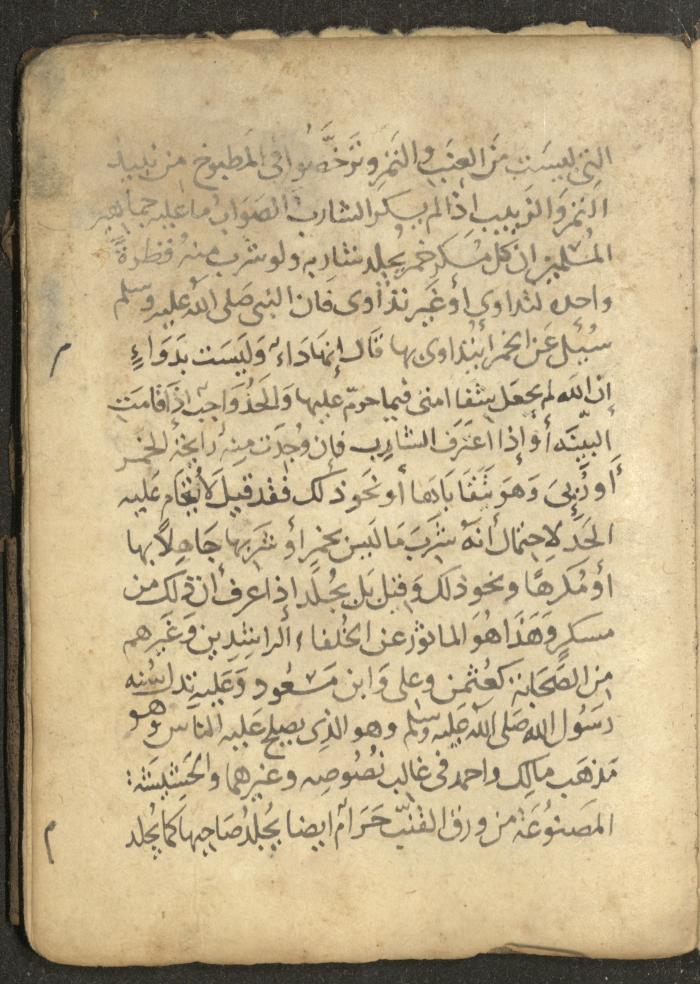 التي ليست من العنب والتمر وترخصوا في المطبوخ من نبيذ
التمر والزبيب اذا لم يسكر الشارب الصواب ما عليه جماهير
المسلمين ان كل مسكر خمر يجلد شاربه ولو شرب منه قطرة
واحده لتداوي أو غير تداوى فان النبي صلى الله عليه وسلم
سئل عن الخمر أيتداوى بها قال إنها داء وليست بدواء
إن الله لم يجعل شفا امتي فيما حرم عليها والحد واجب إذا قامت
البينه أو إذا اعترف الشارب فإن وجدت منه رايحة الخمر
أو رئي وهو يتقاياها أو نحو ذلك فقد قيل لا يقام عليه
الحد لاحتمال أنه شرب ما ليس بخمر أو شربها جاهلا بها
أو مكرها ونحو ذلك وقيل بل يجلد إذا عرف أن ذلك من
مسكر وهذا هو الماثور عن الخلفاء الراشدين وغيرهم
من الصحابة كعثمن وعلى وابن مسعود وعليه تدل سنه
رسول الله صلى الله عليه وسلم وهو الذي يصلح عليه الناس وهو
مذهب مالك واحمد في غالب نصوصه وغيرهما والحشيشة
المصنوعة من ورق القنب حرام أيضا يجلد صاحبها كما يجلد